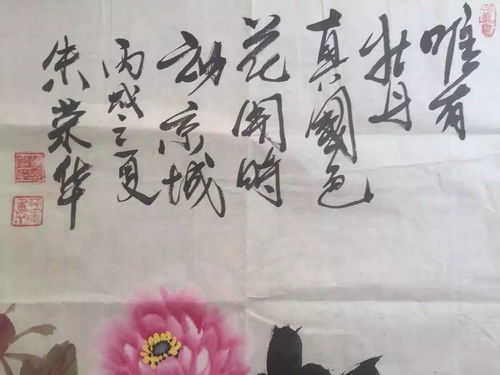 唯有
牡丹
真國色
花開時
動京城
丙戌之夏
朱荣华